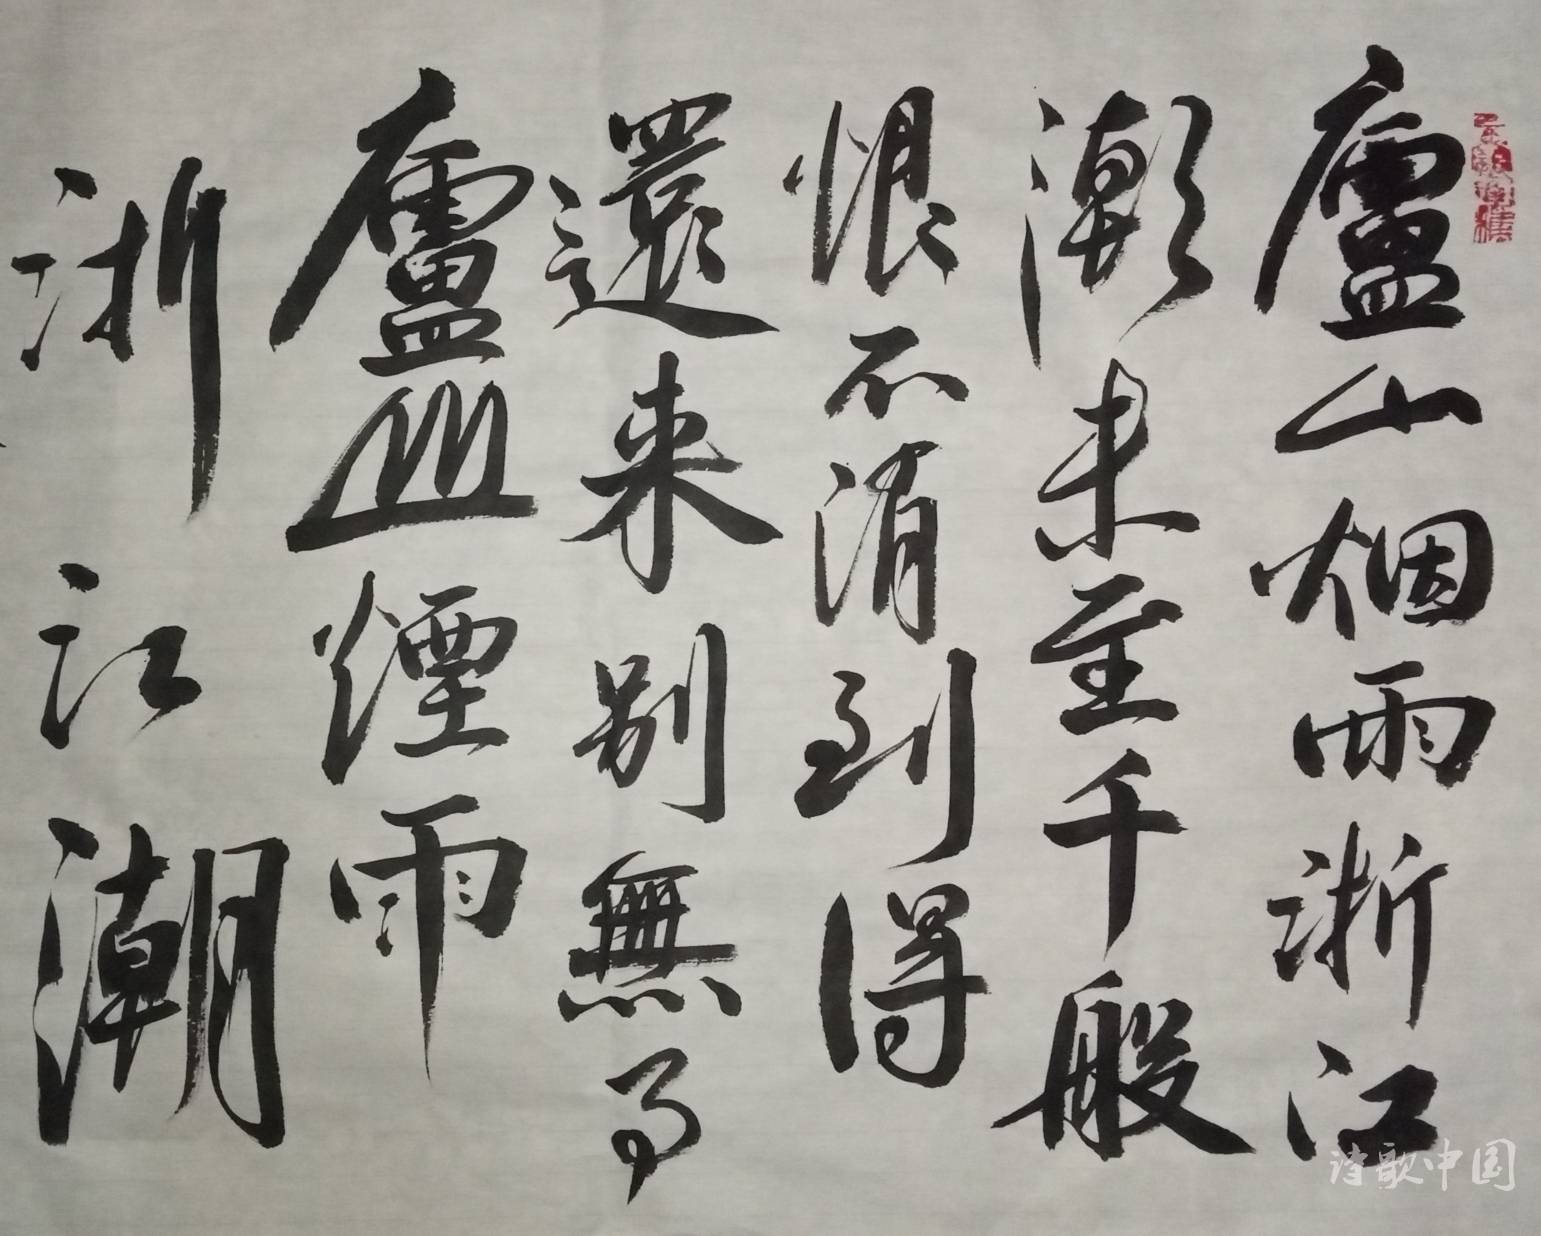 廬山烟雨浙江
潮未至千般
恨不消到得
還来别無事
廬山煙雨
浙江潮
诗歌中国